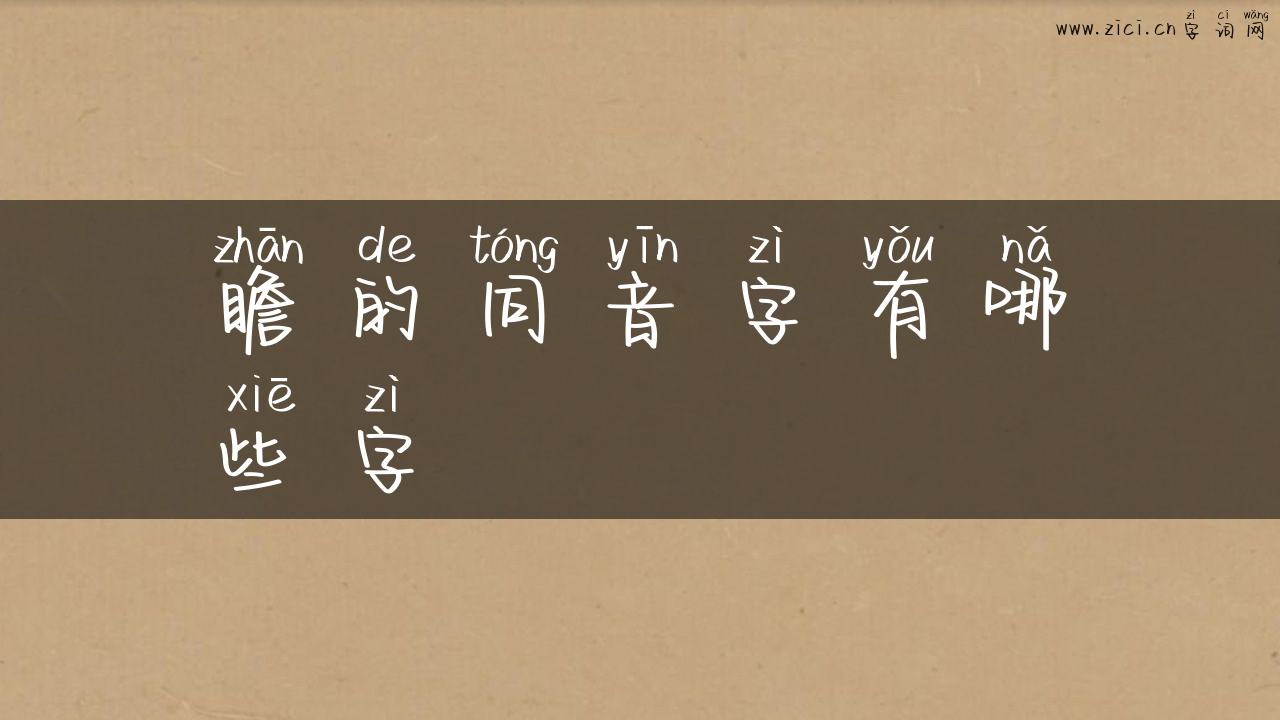 zì cí wǎng
www.zici.cn 字 词 网
zhān de tóng yīn zì yǒu nǎ
瞻 的 同 音 字 有 哪
xiē zì
些 字